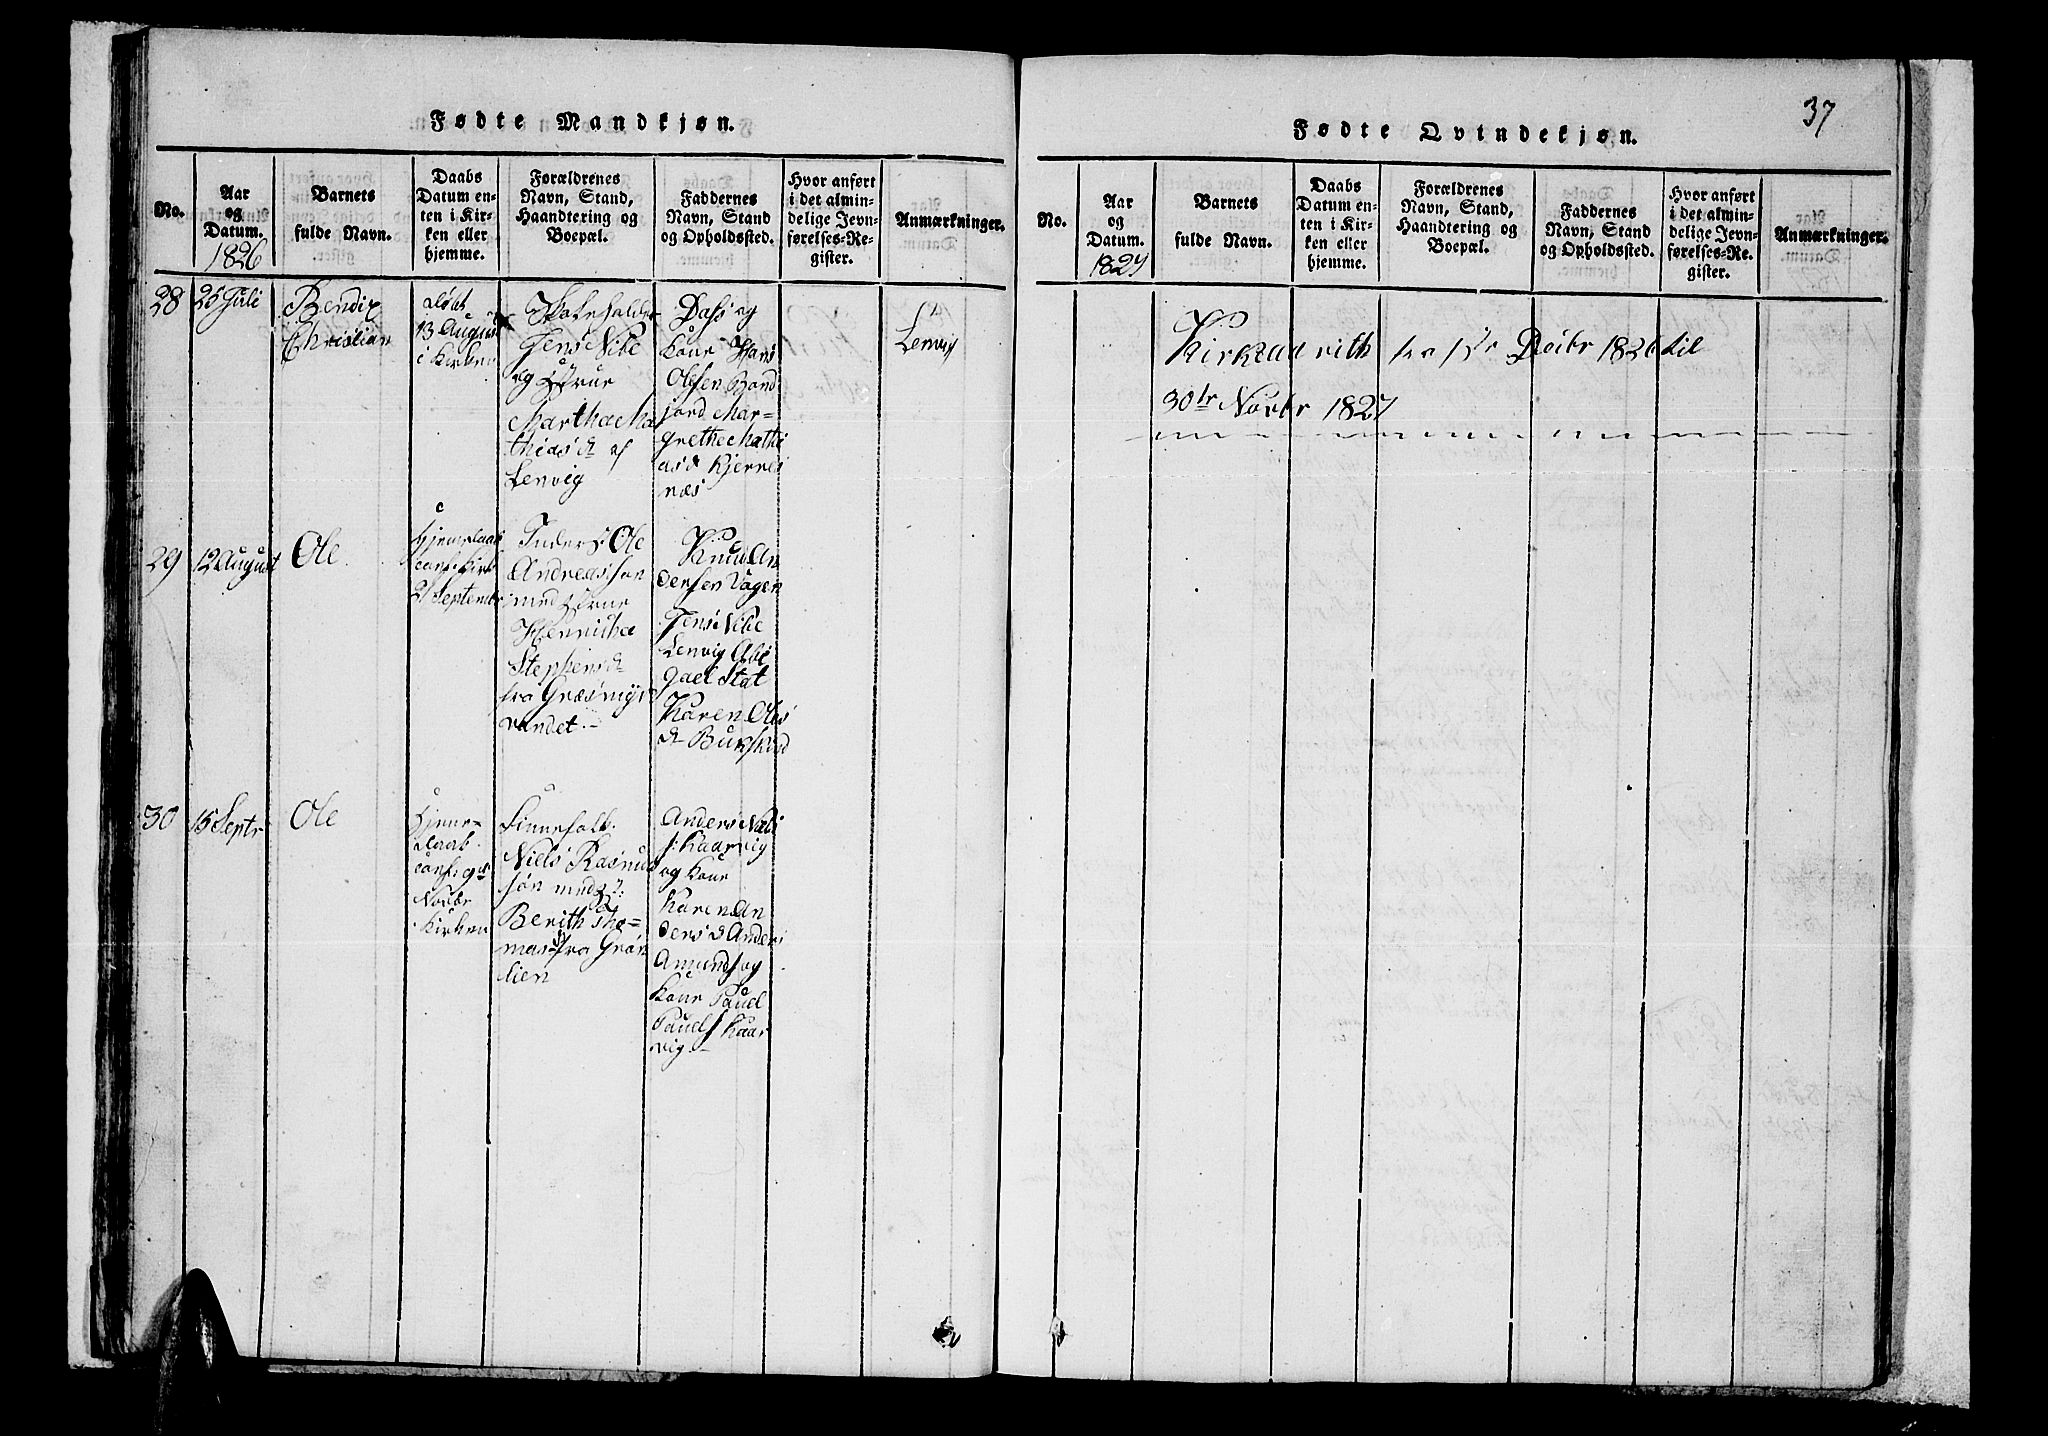 Fødte Mandkjøn.
No.
Aar
og
Datum.
1826
Barnets
fulde Navn.
Daabs
Datum en-
ten i Kir-
ken eller
hjemme.
Forældrenes
Navn, Stand,
Haandtering og
Boepæl.
Faddernes
Navn, Stand
og Opholdssted.
Hvor anført
i det almin-
delige Jevn-
førelses-Re-
gister.
Anmærkninger.
28
25 Juli
Bendix
Christian
døbt
13 August
i Kirken
Skoleholder
Jens Nibe
og Hstrue
Martha Ma
thiasd af
Lenvig
Dass og
Kone Hans
Olesen Bond
jord Mar=
grethe Mathi
asd Kjerres
næs
Lenvig
29
12 August
Ole
Hjemedaab
conf i Kirk
21 September
Inders Ole
Andreasson
med Hstrue
Hennicha
Stephensd
fra Græsmyr
vandet.-
Knud An
dersen Vogen
Jens Nibe
Lenvig Abi
gael Stat
Karen Oles
d Bukskind
30
15 Septr
Ole
Hjeme=
daab
conf:
Novbr
Kirken
Finnefolk
Niels Rasmus
søn med H:
Berith Tho=
masd fra Grøn
lien
Anders Niels
s: Kaarvig
og Kone
Karen An
dersd Anders
Amunds og
Kone Paul
Pauels Kaar
vig.-
37
Fødte Qvindekjøn.
No.
Aar
og
Datum.
1827
Barnets
fulde Navn.
Daabs
Datum en-
ten i Kir-
ken eller
hjemme.
Forældrenes
Navn, Stand,
Haandtering og
Boepæl.
Faddernes
Navn, Stand
og Opholdssted.
Hvor anført
i det almin-
delige Jevn-
førelses-Re-
gister.
Anmærkninger.
Kirkeaaret fra 1ste Decbr 1826 til
30te Novbr 1827